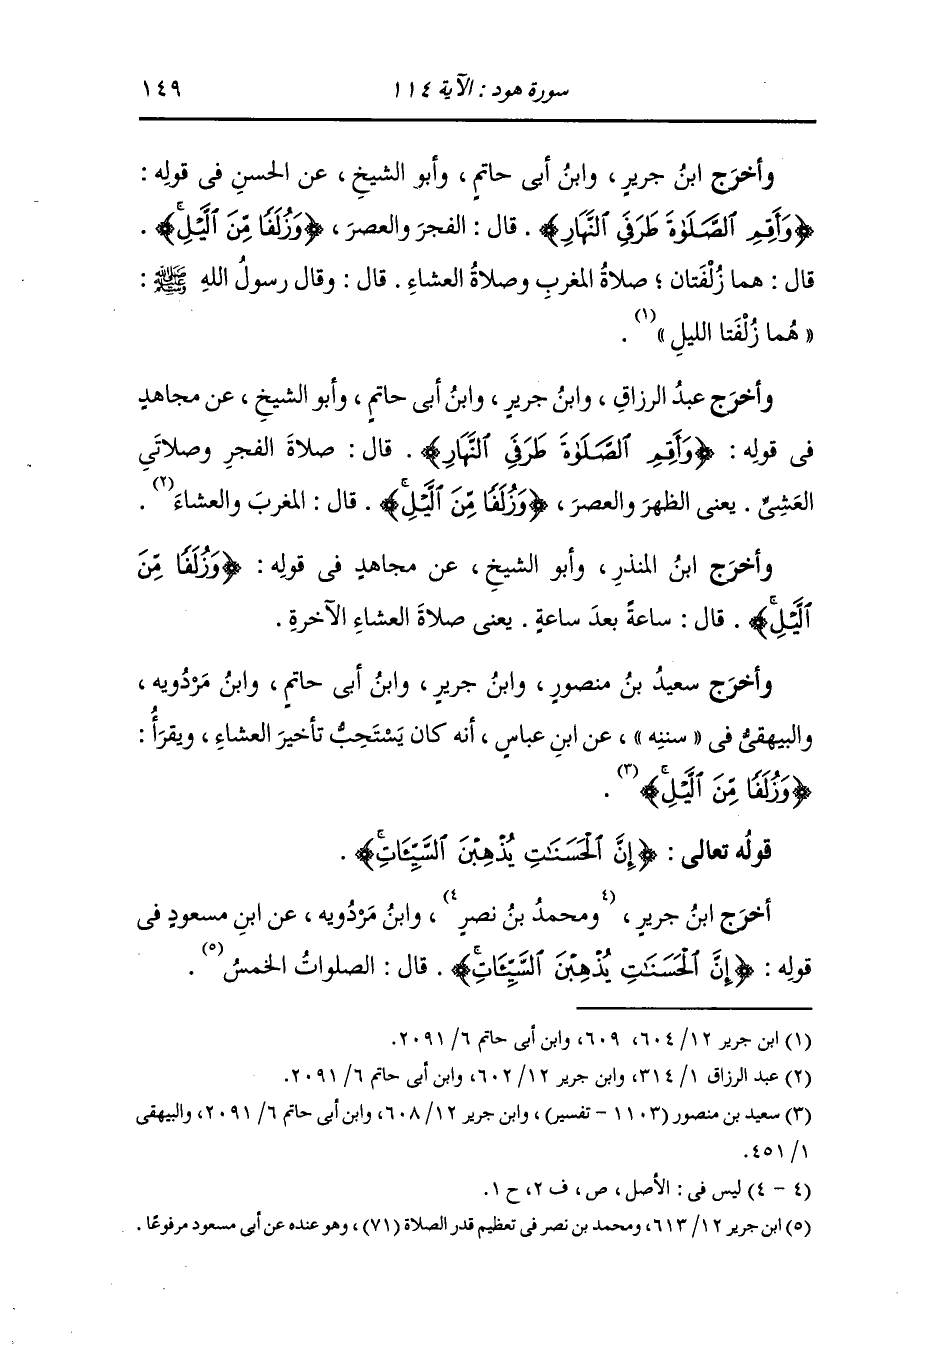 سورة هود : الآية ١١٤ ١٤٩
وأخرَج ابنُ جريرٍ ، وابنُ أبى حاتمٍ ، وأبو الشيخِ ، عن الحسنِ فى قولِه :
﴿وَأَقِمِ ٱلصَّلَوٰةَ طَرَفَيِ ٱلنَّهَارِ﴾ . قال : الفجرَ والعصرَ ، ﴿وَزُلَفًا مِّنَ ٱلَّيْلِۚ﴾ .
قال : هما زُلْفَتان ؛ صلاةُ المغربِ وصلاةُ العشاءِ . قال : وقال رسولُ اللهِ ﷺ :
« هُما زُلْفَتا الليلِ »(١) .
وأخرَج عبدُ الرزاقِ ، وابنُ جريرٍ ، وابنُ أبى حاتمٍ ، وأبو الشيخِ ، عن مجاهدٍ
فى قولِه : ﴿وَأَقِمِ ٱلصَّلَوٰةَ طَرَفَيِ ٱلنَّهَارِ﴾ . قال : صلاةَ الفجرِ وصلاتَىِ
العَشِىِّ . يعنى الظهرَ والعصرَ ، ﴿وَزُلَفًا مِّنَ ٱلَّيْلِۚ﴾ . قال : المغربَ والعشاءَ(٢) .
وأخرَج ابنُ المنذرِ ، وأبو الشيخِ ، عن مجاهدٍ فى قولِه : ﴿وَزُلَفًا مِّنَ
ٱلَّيْلِۚ﴾ . قال : ساعةً بعدَ ساعةٍ . يعنى صلاةَ العشاءِ الآخرةِ .
وأخرَج سعيدُ بنُ منصورٍ ، وابنُ جريرٍ ، وابنُ أبى حاتمٍ ، وابنُ مَرْدُويه ،
والبيهقىُّ فى « سننِه » ، عن ابنِ عباسٍ ، أنه كان يَسْتَحِبُّ تأخيرَ العشاءِ ، ويقرَأُ :
﴿وَزُلَفًا مِّنَ ٱلَّيْلِۚ﴾(٣) .
قولُه تعالى : ﴿إِنَّ ٱلْحَسَنَٰتِ يُذْهِبْنَ ٱلسَّيِّـَٔاتِۚ﴾ .
أخرَج ابنُ جريرٍ ، (٤ومحمدُ بنُ نصرٍ٤) ، وابنُ مَرْدُويه ، عن ابنِ مسعودٍ فى
قولِه : ﴿إِنَّ ٱلْحَسَنَٰتِ يُذْهِبْنَ ٱلسَّيِّـَٔاتِۚ﴾ . قال : الصلواتُ الخمسُ(٥) .
(١) ابن جرير ١٢/ ٦٠٤، ٦٠٩، وابن أبى حاتم ٦/ ٢٠٩١.
(٢) عبد الرزاق ١/ ٣١٤، وابن جرير ١٢/ ٦٠٢، وابن أبى حاتم ٦/ ٢٠٩١.
(٣) سعيد بن منصور (١١٠٣ - تفسير) ، وابن جرير ١٢/ ٦٠٨، وابن أبى حاتم ٦/ ٢٠٩١، والبيهقى
١/ ٤٥١.
(٤ - ٤) ليس فى : الأصل ، ص ، ف ٢، ح ١.
(٥) ابن جرير ١٢/ ٦١٣، ومحمد بن نصر فى تعظيم قدر الصلاة (٧١) ، وهو عنده عن أبى مسعود مرفوعًا .